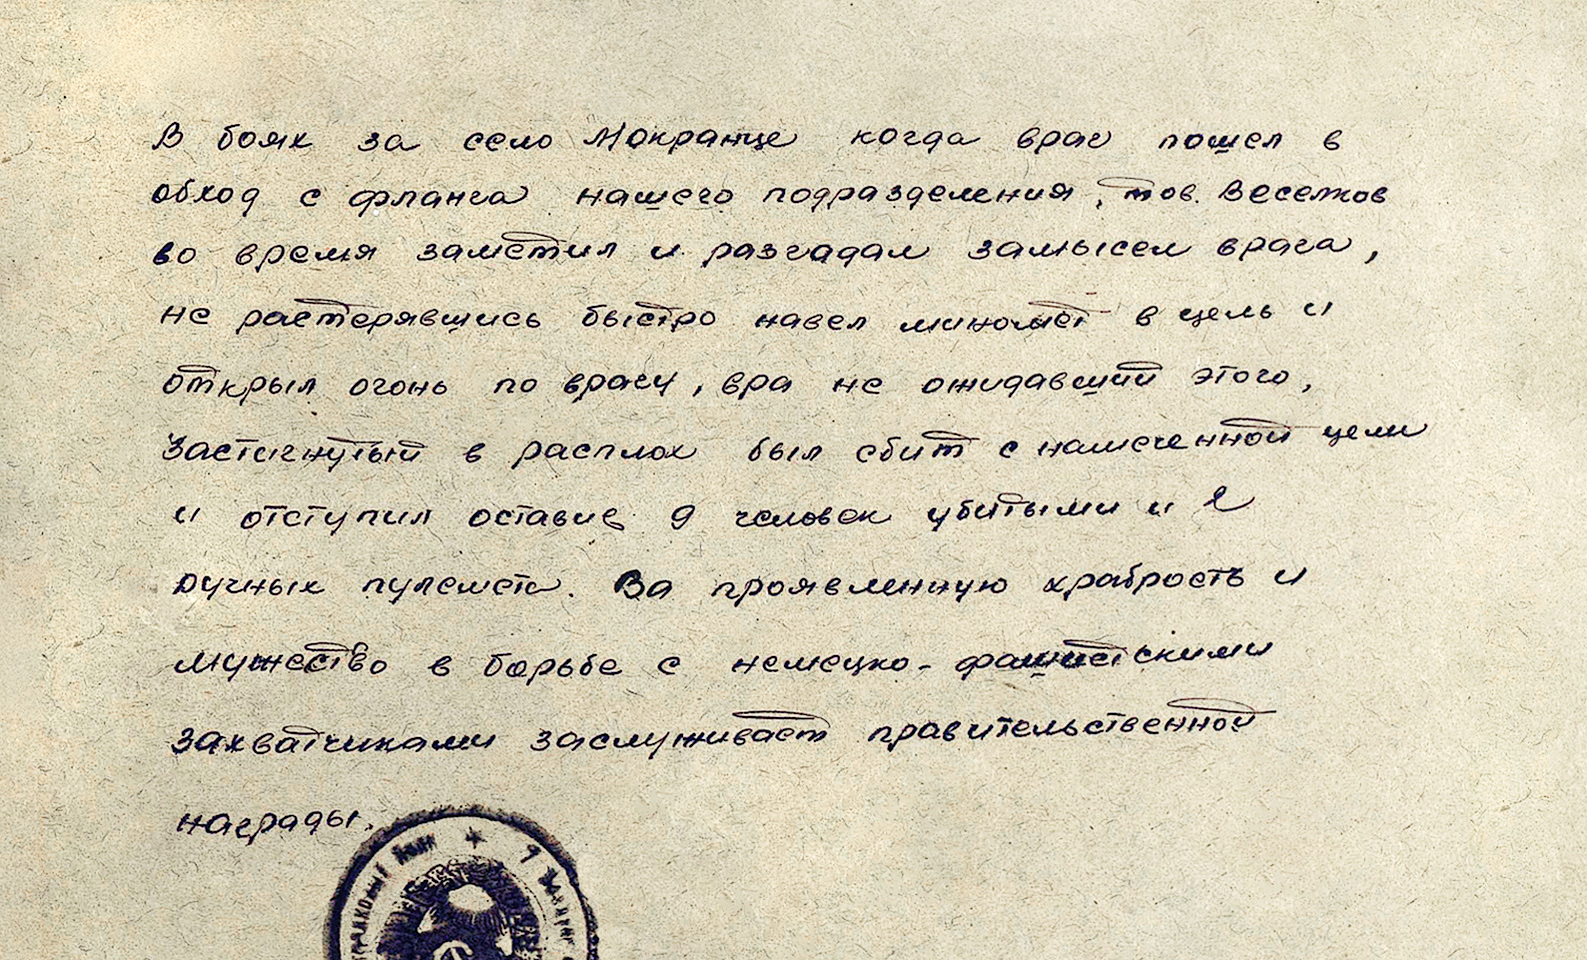 В боях за село Мокранце когда враг пошел в
обход с фланга нашего подразделения, тов. Веселков
во время заметил и разгадал замысел врага,
не растерявшись быстро навел миномет в цель и
открыл огонь по врагу, вра не ожидавший этого,
застигнутый в расплох был сбит с намеченной цели
и отступил оставив 9 человек убитыми и 2
ручных пулемета. За проявленную храбрость и
мужество в борьбе с немецко-фашистскими
захватчиками заслуживает правительственной
награды.